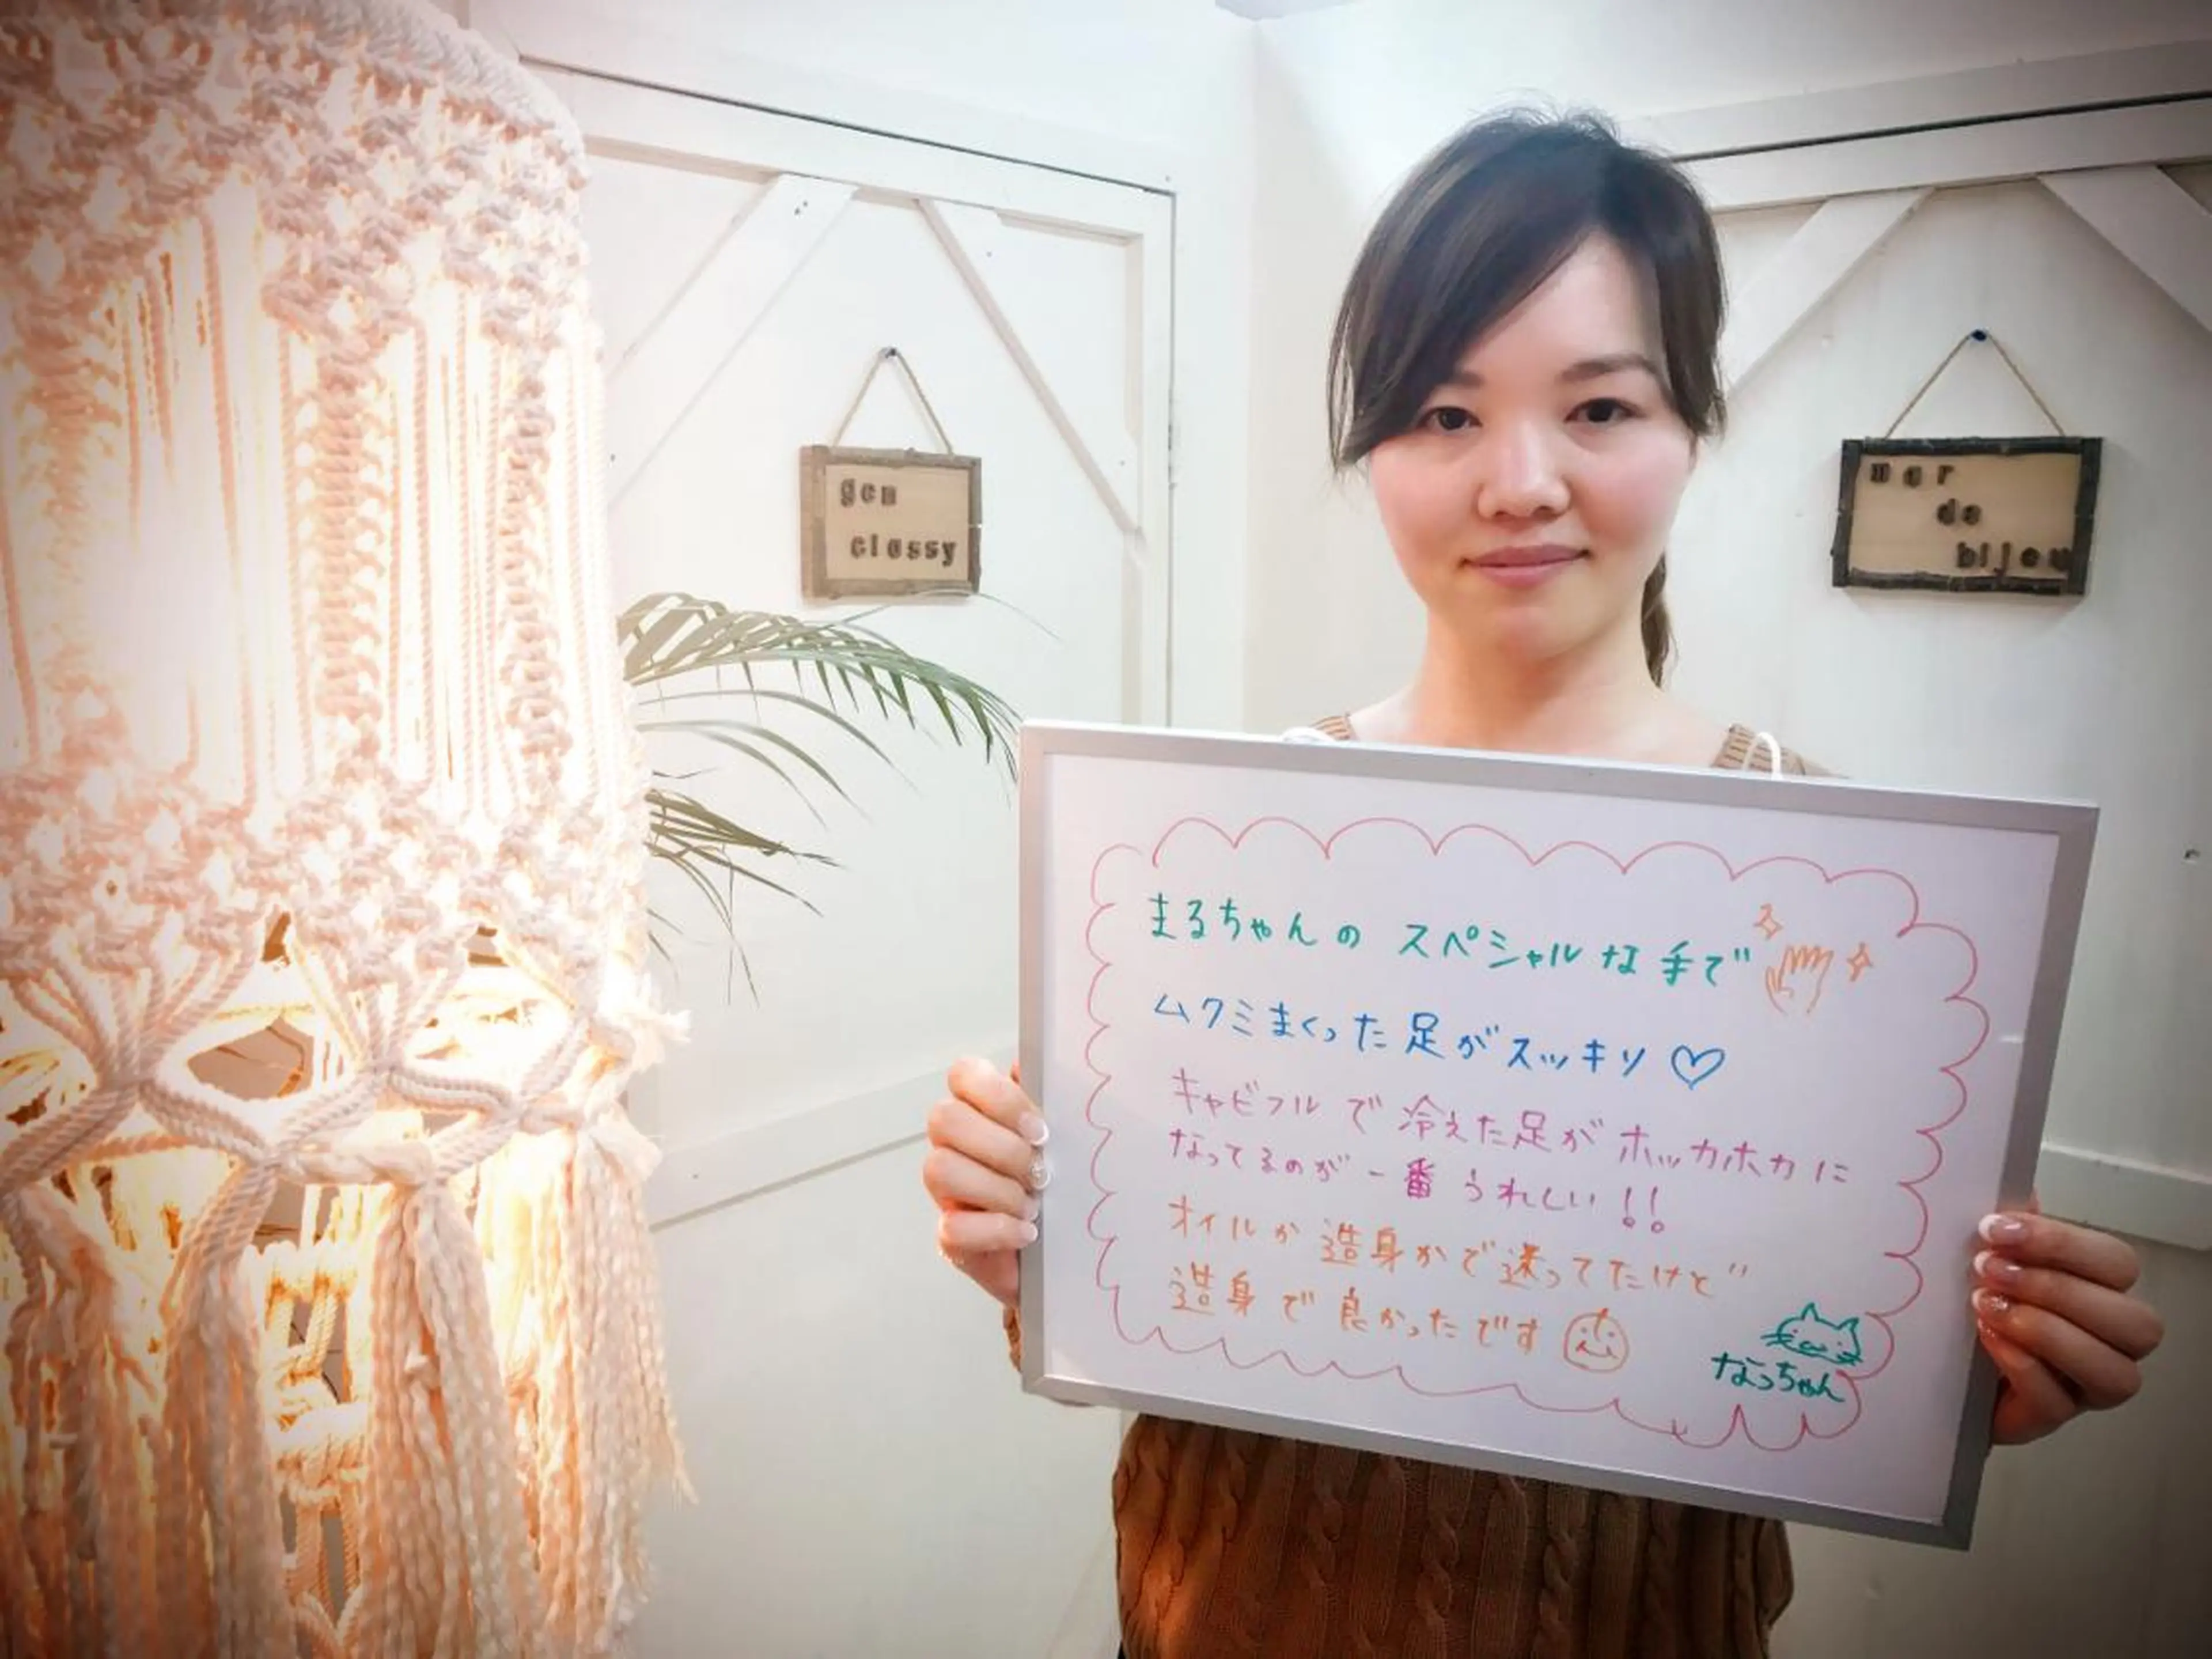 gen
classy
mar
de
bijou
まるちゃんの スペシャルな手で
ムクミまくった足がスッキリ♡
キャビフルで冷えた足がホッカホカに
なってるのが一番うれしい!!
オイルか造身かで迷ってたけど
造身で良かったです
なっちゃん